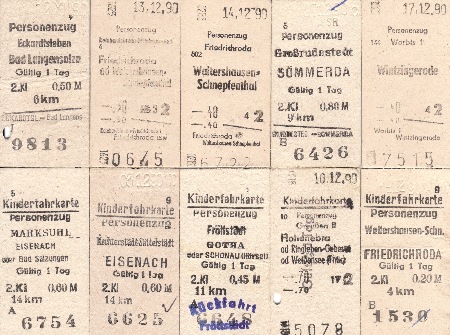 Personenzug
Eckardtsleben
Bad Langensalza
Gültig 1 Tag
2.Kl 0,50 M
6 km
9813
13.12.90
Personenzug
Friedrichroda
od Waltershausen-
Schnepfenthal
0645
14.12.90
Personenzug
Friedrichroda
Waltershausen-
Schnepfenthal
-.40
-.40 2
Friedrichroda
Waltershausen Schnepfenthal
Personenzug
Großrudestedt
SÖMMERDA
Gültig 1 Tag
2.Kl 0,80 M
9 km
B 6426
17.12.90
Personenzug
Worbis
Wintzingerode
-.40
-.40 2
Worbis
Wintzingerode
17515
5
Kinderfahrkarte
Personenzug
MARKSUHL
EISENACH
oder Bad Salzungen
Gültig 1 Tag
2.Kl 0.60 M
14 km
A 6754
Kinderfahrkarte
Personenzug
EISENACH
Gültig 1 Tag
2.Kl 0,60 M
14 km
6625
Kinderfahrkarte
Personenzug
Fröttstädt
GOTHA
Gültig 1 Tag
2.Kl 0,45 M
11 km
6648
Rückfahrt
Fröttstädt
10.12.90
Kinderfahrkarte
Personenzug
od Ringleben-Gebesee
od Weißensee (Thür)
-.70
-.70 2
5078
9
Kinderfahrkarte
Personenzug
Waltershausen-Schn.
FRIEDRICHRODA
Gültig 1 Tag
2.Kl 0.20 M
4 km
B 1539